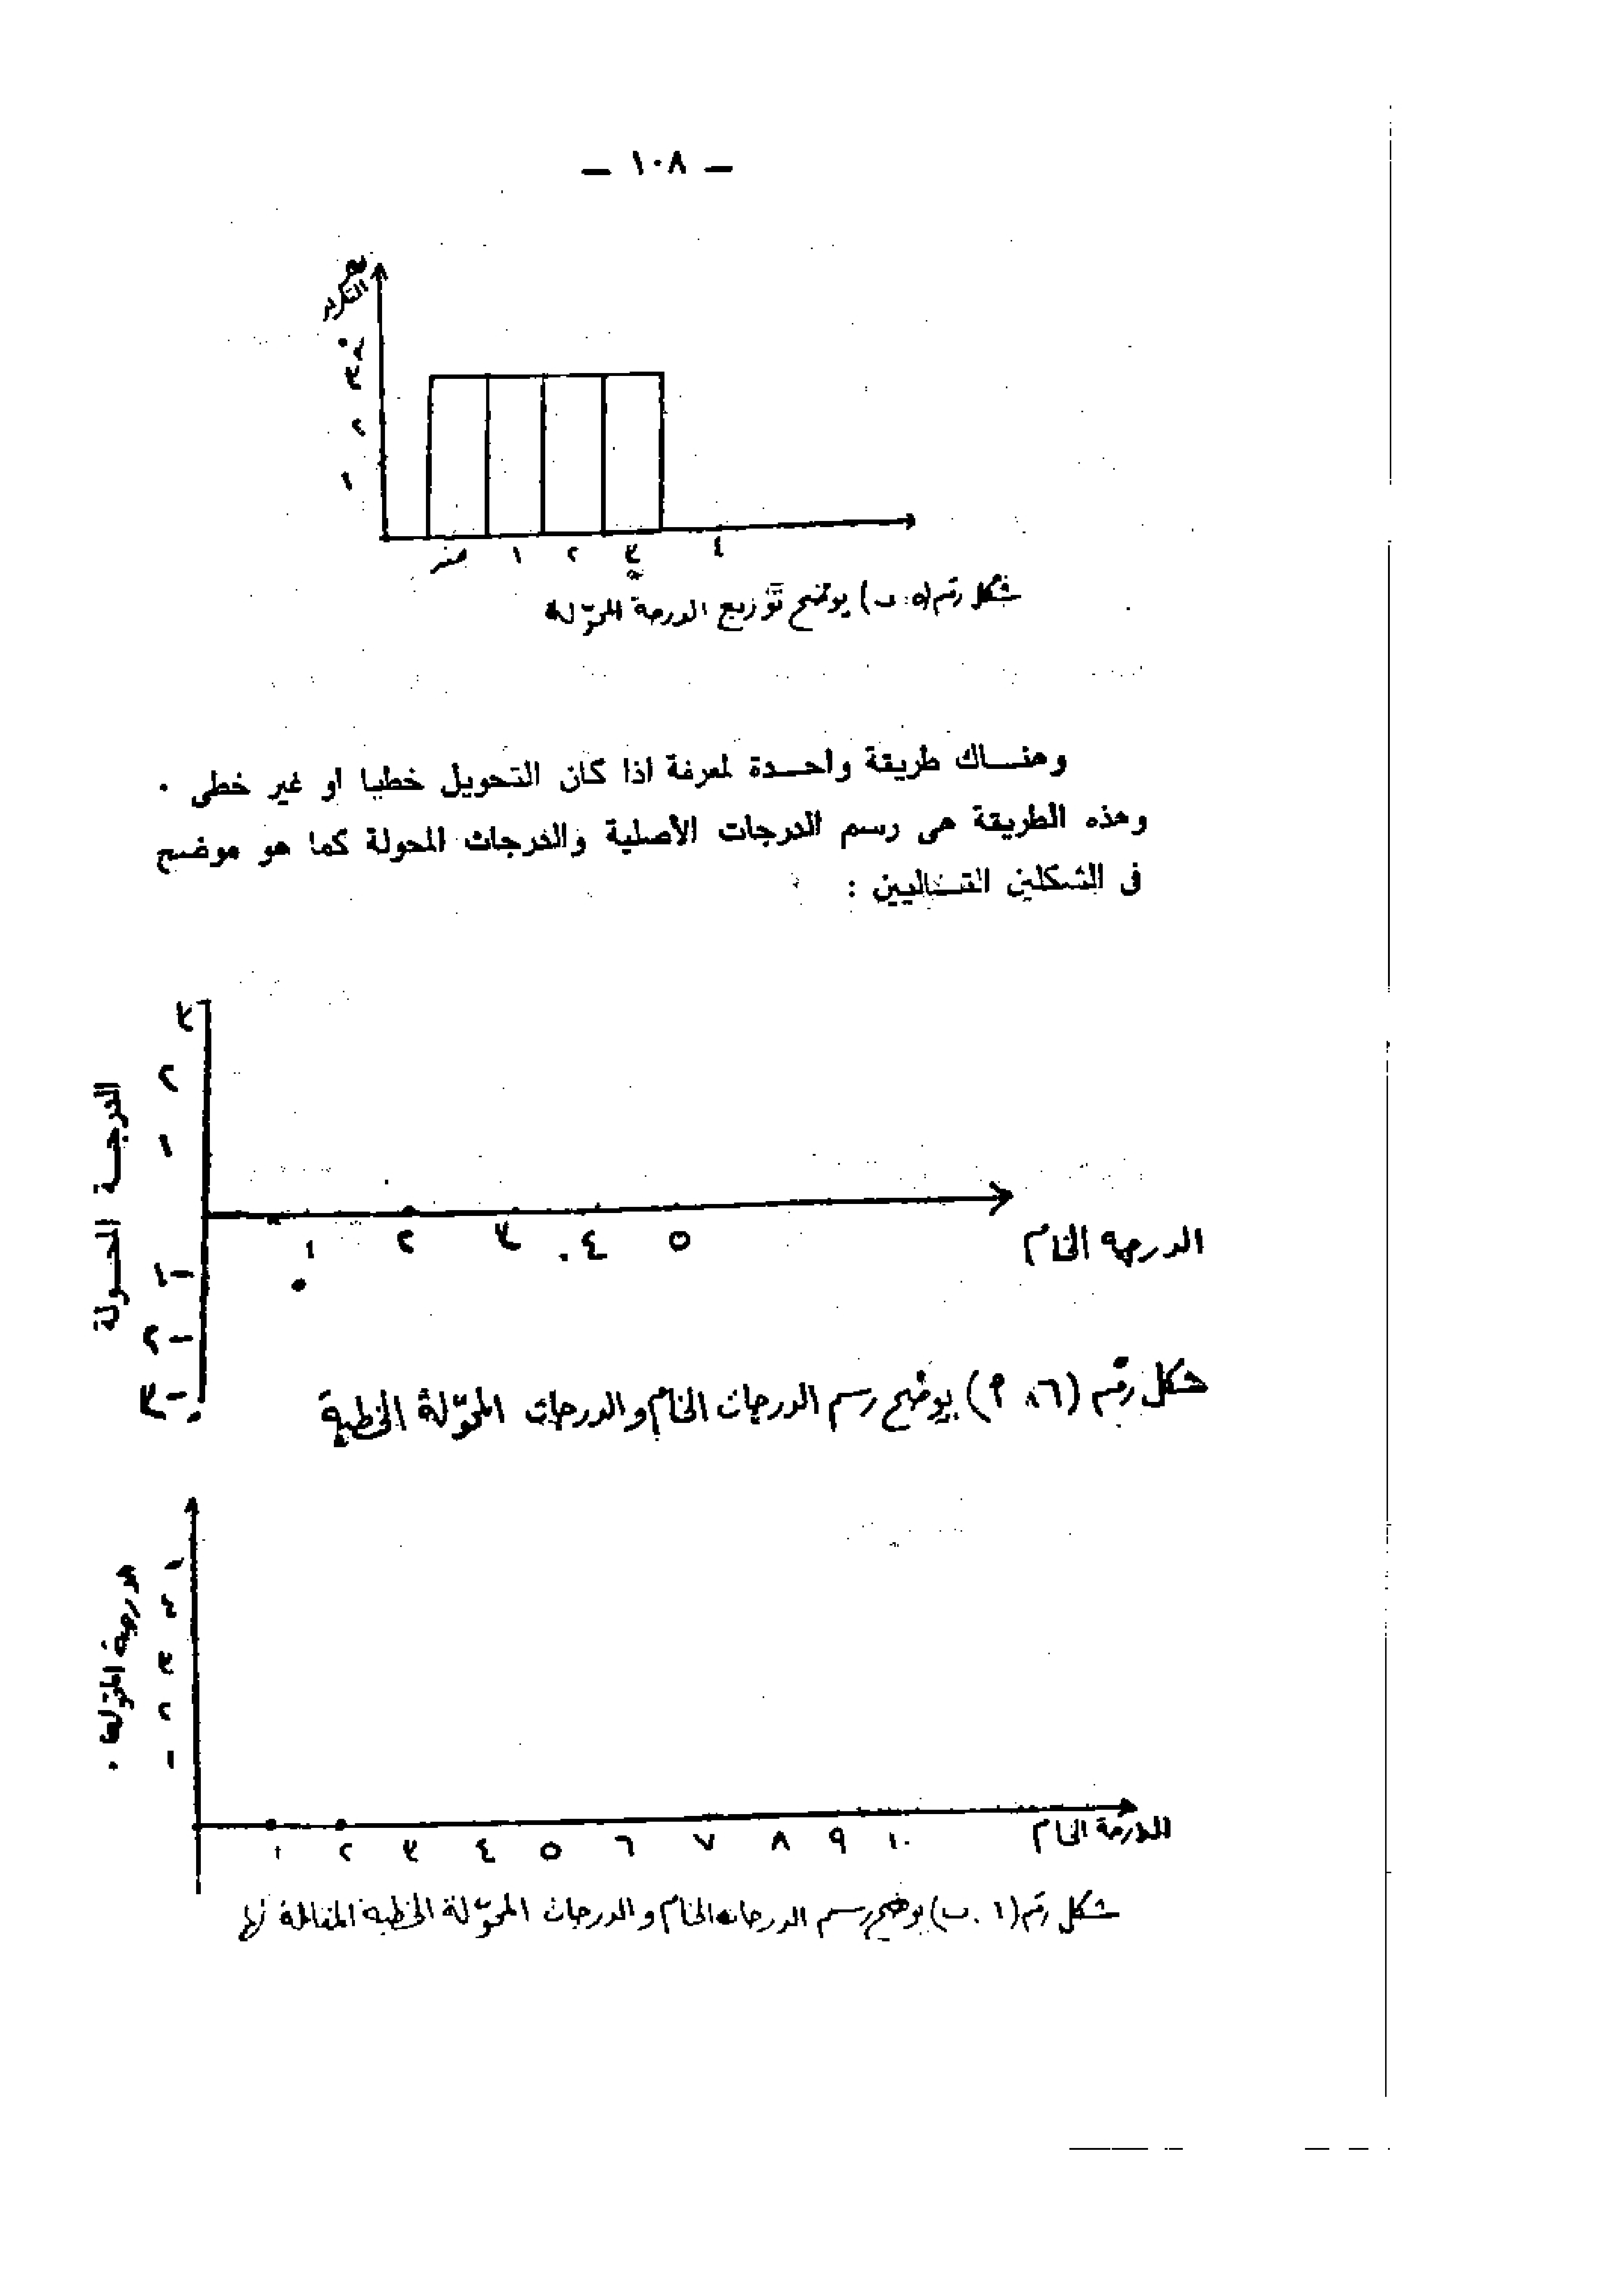 — ١٠٨ —
التكرار
٣
٢
١
صفر ١ ٢ ٣ ٤
شكل رقم (٥ ب) يوضح توزيع الدرجة المحوّلة
وهنـــاك طريقة واحـــدة لمعرفة اذا كان التحويل خطيا او غير خطى ٠
وهذه الطريقة هى رسم الدرجات الأصلية والدرجات المحولة كما هو موضح
فى الشكلين التــاليين :
الدرجــة المحــولة
٣
٢
١
١ ٢ ٣ ٤ ٥
الدرجة الخام
١−
٢−
٣−
شكل رقم (٦ أ) يوضح رسم الدرجات الخام والدرجات المحوّلة الخطية
الدرجة المحولة
٣
٢
١
١ ٢ ٣ ٤ ٥ ٦ ٧ ٨ ٩ ١٠
الدرجة الخام
شكل رقم (٦ ب) يوضح رسم الدرجات الخام والدرجات المحوّلة الخطية المقابلة لها